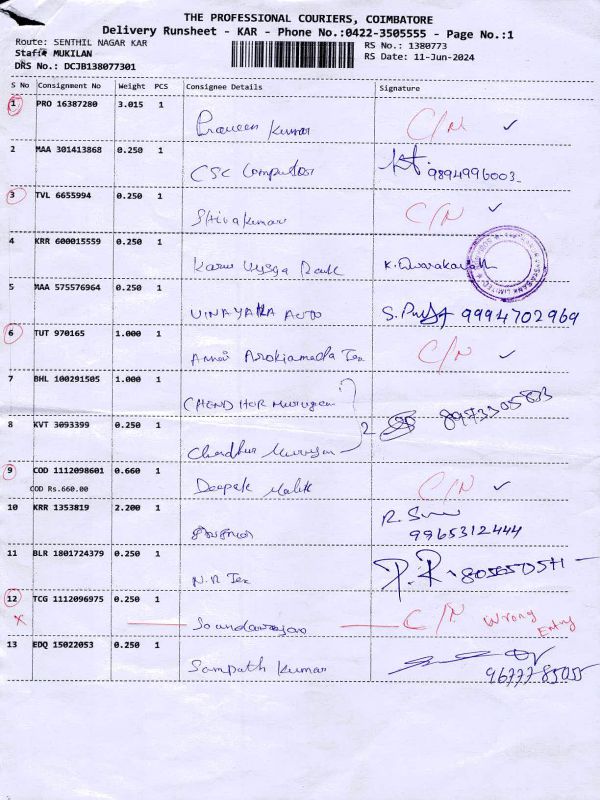 THE PROFESSIONAL COURIERS, COIMBATORE
Delivery Runsheet - KAR - Phone No.:0422-3505555 - Page No.:1
Route: SENTHIL NAGAR KAR
RS No.: 1380773
Staff: MUKILAN
RS Date: 11-Jun-2024
DRS No.: DCJB138077301
S No Consignment No Weight PCS Consignee Details Signature
1 PRO 16387280 3.015 1
Praveen Kumar C/N ✓
2 MAA 301413868 0.250 1
CSC Computer 9894996003
3 TVL 6655994 0.250 1
Shivakumar C/N ✓
4 KRR 600015559 0.250 1
Karur Vysya Bank
5 MAA 575576964 0.250 1
VINAYAKA AUTO 9994702969
6 TUT 970165 1.000 1
Annai Arokiamada Tex C/N ✓
7 BHL 100291505 1.000 1
CHENDHUR Murugan
8 KVT 3093399 0.250 1
2
Chendhur Murugan
9 COD 1112098601 0.660 1
COD Rs.660.00
Deepak Malik C/N ✓
10 KRR 1353819 2.200 1
9965312444
11 BLR 1801724379 0.250 1
N.R Tex
12 TCG 1112096975 0.250 1
Soundarrajan C/N Wrong Entry
13 EDQ 15022053 0.250 1
Sampath Kumar 9677785055